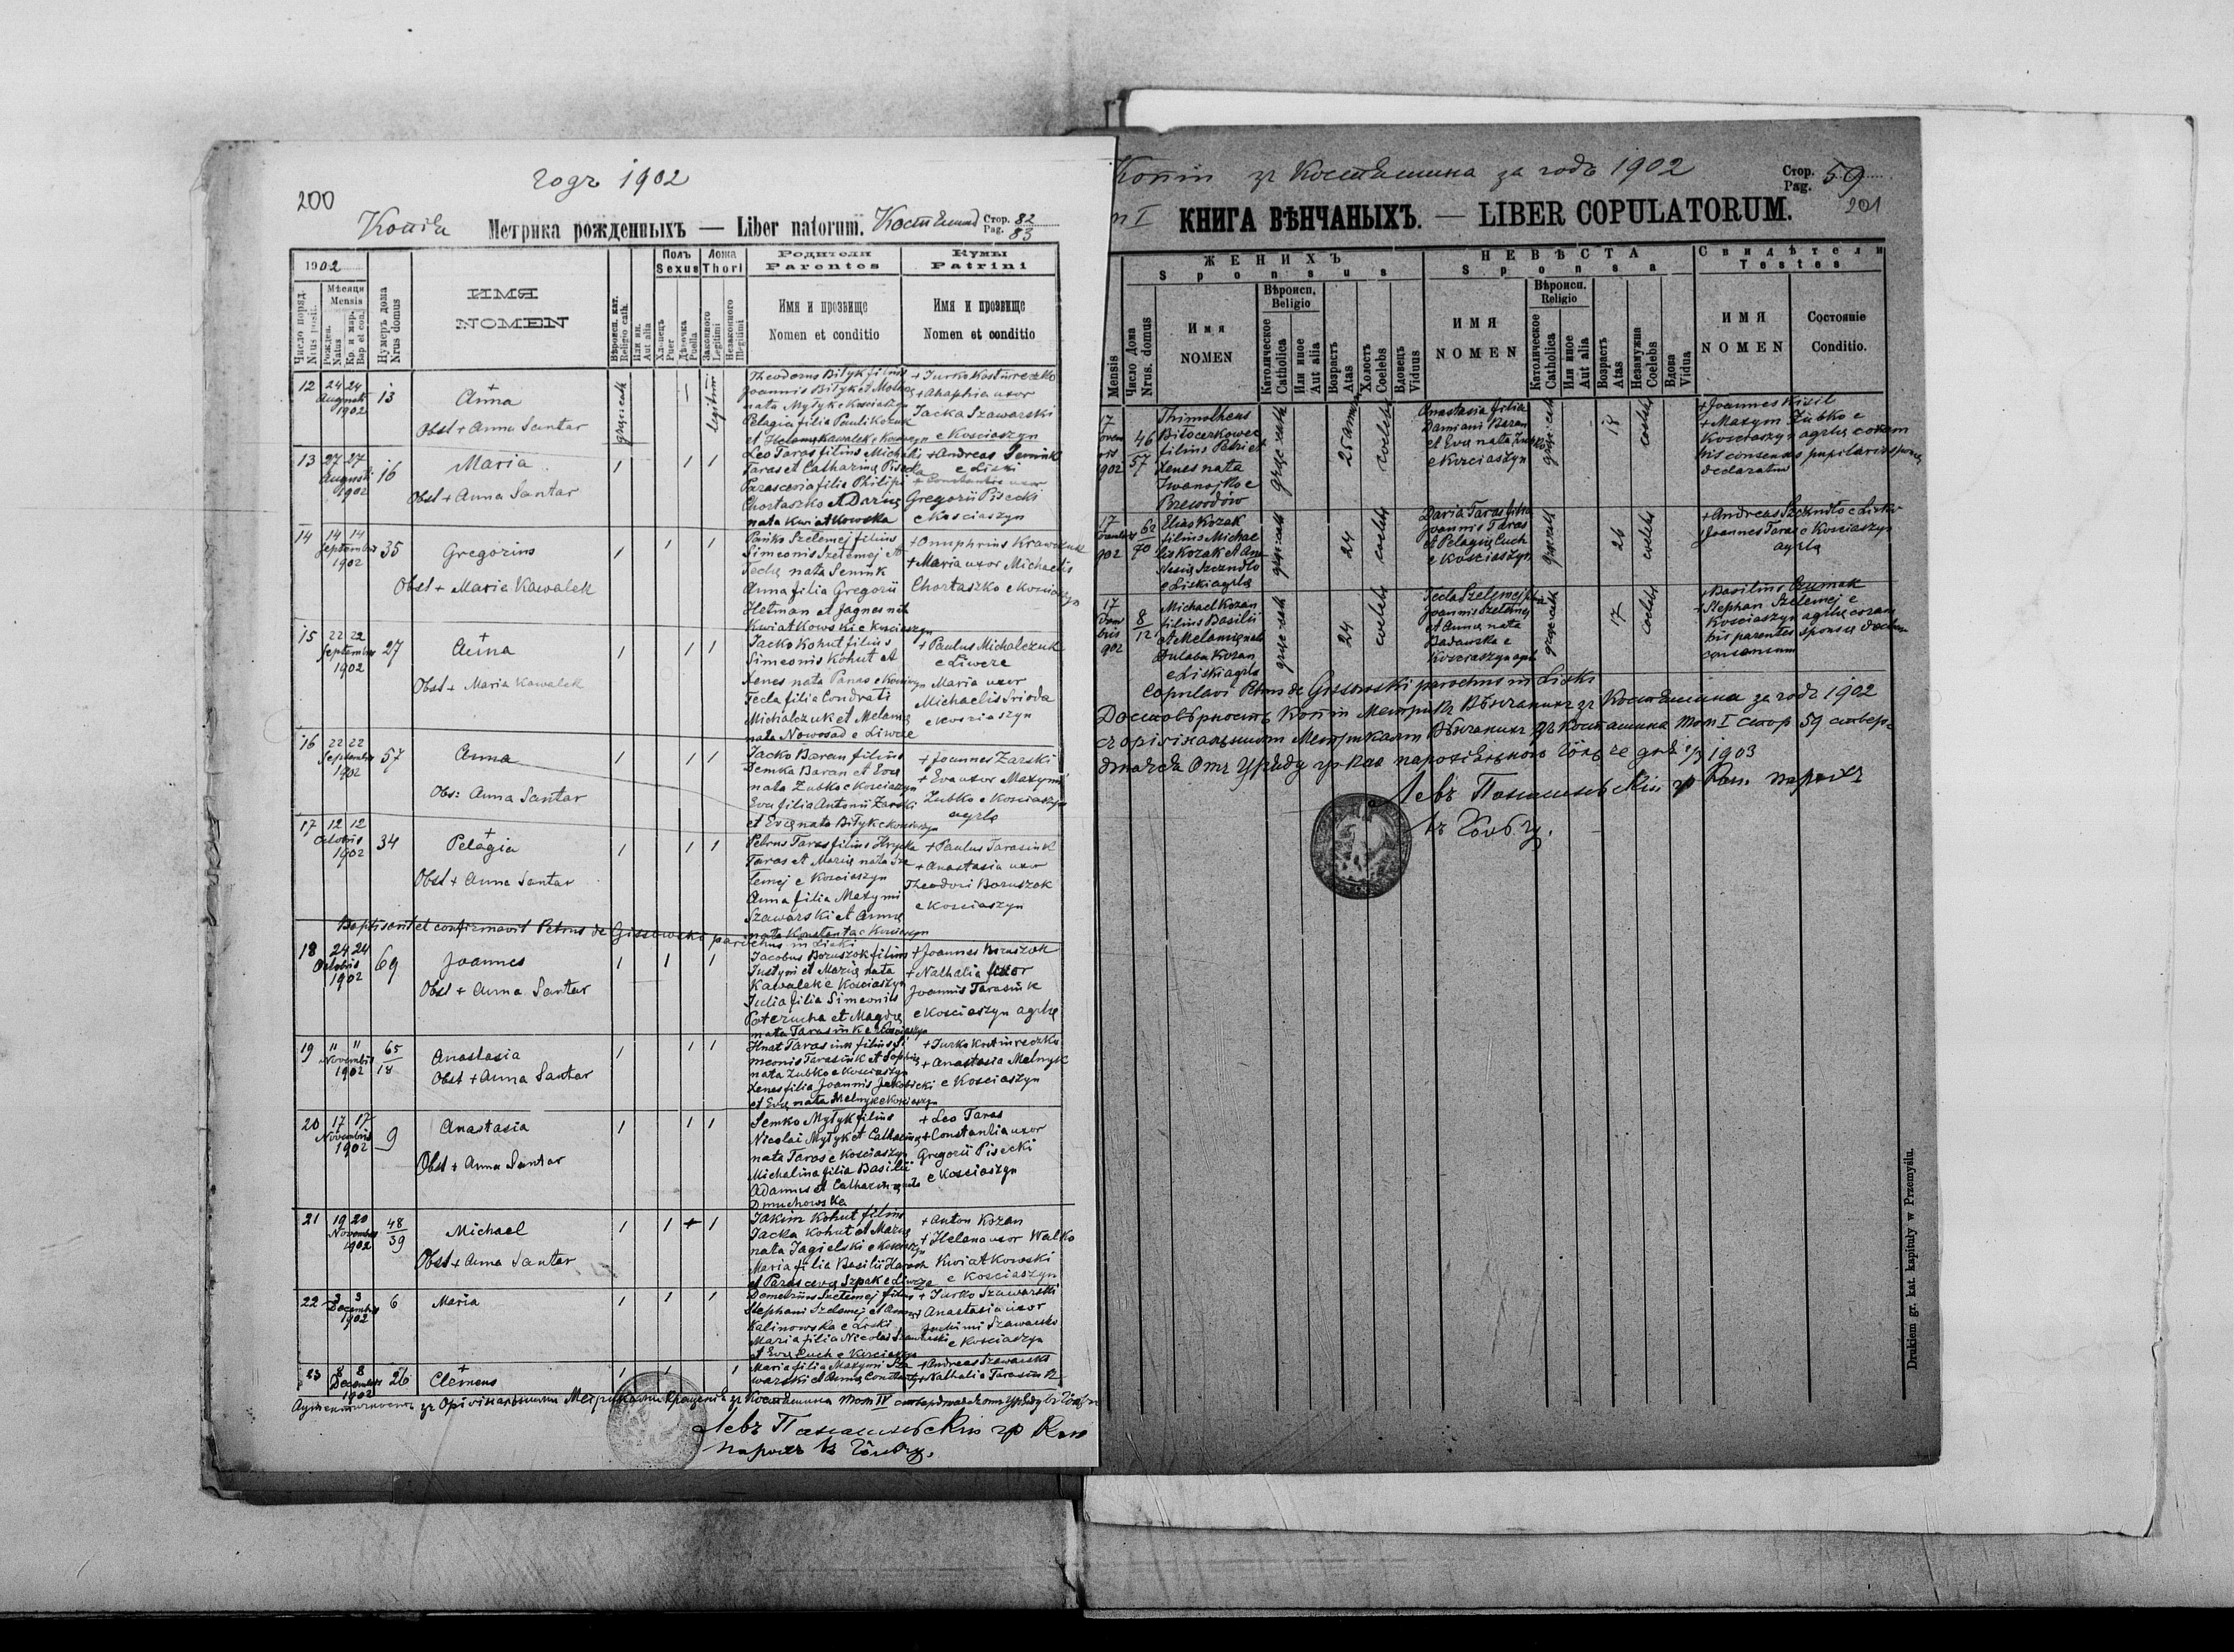 200
годъ 1902
Копія Метрика рожденныхъ — Liber natorum. Стор. 82
Pag. 83
1902
Число поряд.
Nrus posit.
Мѣсяця
Mensis
Рожден.
Natus
Кр. и мѵр.
Bap et con.
Нумеръ дома
Nrus domus
ИМЯ
NOMEN
Вѣроисп. кат.
Religio cath.
Или ин.
Aut alia
Полъ
Sexus
Хлопецъ
Puer
Дѣвочка
Puella
Ложа
Thori
Законного
Legitimi
Незаконного
Illegitimi
Родители
Parentes
Имя и прозвище
Nomen et conditio
Кумы
Patrini
Имя и прозвище
Nomen et conditio
12 24 24
Augusti
1902
13
+
Anna
Obst + Anna Santar
Theodorus Bityk filius
Joannis Bityk et
nata Mytyk e Kosciaszyn
Pelagia filia Pauli Kozak
et Helenę Kawalek e
+ Jurko
+ uxor
Jacka Szawarski
e Kosciaszyn
13 27 27
Augusti
1902
16
Maria
Obst + Anna Santar
Leo Taras filius Michaeli
Taras et Catharinę Pisecka
Parascevia filia Philipi
Chortaszko et Darię
nata Kwiatkowska
+ Andreas Seniuk
e Liski
+ Constantia uxor
Gregorii Pisecki
e Kosciaszyn
14 14 14
Septembris
1902
35
Gregorius
Obst + Maria Kawalek
Pańko Szelemej filius
Simeonis Szelemej et
Teclę nata Seniuk
Anna filia Gregorii
Hetman et Jagnes nata
Kwiatkowski e Kosciaszyn
+ Onuphrius Krawczuk
+ Maria uxor Michaelis
Chortaszko e Kosciaszyn
15 22 22
Septembris
1902
27
+
Anna
Obst + Maria Kawalek
Jacko Kohut filius
Simeonis Kohut et
Xenes nata Panas e Kosciaszyn
Tecla filia Condrati
Michalczuk et Melanię
nata Nowosad e Liwcze
+ Paulus Michalczuk
e Liwcze
Maria uxor
Michaelis Srioda
e Kosciaszyn
16 22 22
Septembris
1902
57
Anna
Obs: Anna Santar
Jacko Baran filius
Demka Baran et Evę
nata Zubko e Kosciaszyn
Eva filia Antonii Zarski
et Evę nata Bityk e Kosciaszyn
+ Joannes Zarski
+ Eva uxor Maxymi
Zubko e Kosciaszyn
agrlę
17 12 12
Octobris
1902
34
+
Pelagia
Obst + Anna Santar
Petrus Taras filius Hryćka
Taras et Marię nata Sze
lemej e Kosciaszyn
Anna filia Maxymi
Szawarski et Annę
nata e Kosciaszyn
+ Paulus Tarasiuk
+ Anastasia uxor
Theodori Boruszok
e Kosciaszyn
Baptisavit et confirmavit Petrus de Gissowski parochus in Liski
18 24 24
Octobris
1902
69
Joannes
Obst + Anna Santar
Jacobus Boruszok filius
Justyni et Marię nata
Kawalek e Kosciaszyn
Julia filia Simeonis
Poterucha et Magdę
nata Tarasiuk e Kosciaszyn
+ Joannes Boruszok
+ Nathalia uxor
Joannis Tarasiuk
e Kosciaszyn agrlę
19 11 11
Novembris
1902
65
18
Anastasia
Obst + Anna Santar
Hnat Tarasiuk filius Si
meonis Tarasiuk et Sophię
nata Zubko e Kosciaszyn
Xenes filia Joannis Jakobicki
et Evę nata Melnyk e Kosciaszyn
+ Jurko
+ Anastasia Melnyk
e Kosciaszyn
20 17 17
Novembris
1902
9
Anastasia
Obst + Anna Santar
Semko Mytyk filius
Nicolai Mytyk et Catharinę
nata Taras e Kosciaszyn
Michalina filia Basilii
Adamus et Catharinę nata
Dmuchowska
+ Leo Taras
+ Constantia uxor
Gregorii Pisecki
e Kosciaszyn
21 19 20
Novembris
1902
48
39
Michael
Obst + Anna Santar
Jakim Kohut filius
Jacka Kohut et Marię
nata Jagielski e Kosciaszyn
Maria filia Basilii Harach
et Parascevę Szpak e Liwcze
+ Anton Kozan
+ Helena uxor Walko
Kwiatkowski
e Kosciaszyn
22 3 3
Decembris
1902
6
Maria
Demetrius Szelemej filius
Stephani Szelemej et Annę
Kalinowska e Liski
Maria filia Nicolai Szawarski
et Evę Cuch e Kosciaszyn
+ Jurko Szawarski
Anastasia uxor
Jachimi Szawarski
e Kosciaszyn
23 8 8
Decembris
1902
26
+
Clemens
Maria filia Maxymi Sza
warski et Annę
+ Andreas Szawarski
+ Nathalia Tarasiuk
Левъ гр Кат
парохъ въ
Копія зъ Костяшина за годъ 1902
Стор.
Pag. 59
201
m I КНИГА ВѢНЧАНЫХЪ. — LIBER COPULATORUM.
Mensis
Число Дома
Nrus. domus
ЖЕНИХЪ
Sponsus
Имя
NOMEN
Вѣроисп.
Beligio
Католическое
Catholica
Или иное
Aut alia
Возрастъ
Atas
Холостъ
Coelebs
Вдовецъ
Viduus
НЕВѢСТА
Sponsa
ИМЯ
NOMEN
Вѣроисп.
Religio
Католическое
Catholica
Или иное
Aut alia
Возрастъ
Atas
Незамужня
Coelebs
Вдова
Vidua
Свидѣтели
Testes
ИМЯ
NOMEN
Состояніе
Conditio.
17
902
46
57
Thimotheus
Bitocerkowec
filius Petri et
Xenes nata
Iwanojko e
coelebs
Anastasia filia
Damiani Baran
et Evę nata Zubko
e Kosciaszyn
18
coelebs
+ Joannes Kisil
+ Maxym Zubko e
Kosciaszyn agrlę coram
his consensus pupilaris sponsę
declaratus
17
902
62
70
Elias Kozak
filius Michae
lis Kozak et Ana
stasię Szczudło
e Liski agrlę
24
coelebs
Daria Taras filia
Joannis Taras
et Pelagię Cuch
e Kosciaszyn
26
coelebs
+ Andreas Szczudło e Liski
+ Joannes Taras e Kosciaszyn
agrlę
17
902
8
12
Michael Kozan
filius Basilii
et Melanię nata
Dulaba Kozan
e Liski agrlę
24
coelebs
Tecla Szelemej filia
Joannis Szelemej
et Annę nata
Badowska e
Kosciaszyn agrlę
17
coelebs
+ Basilius Czumak
+ Stephan Szelemej e
Kosciaszyn agrlę coram
his parentes sponsę
consensum
Copulavi Petrus de Gissowski parochus in Liski
Достовѣрность Копіи Метрикъ Вѣнчаныхъ зъ Костяшина за годъ 1902
съ оригінальными Метриками Вѣнчаныхъ зъ Костяшина Том I стор 59
1903
Левъ гр Кат. парохъ
Drukiem gr. kat. kapituły w Przemyślu.